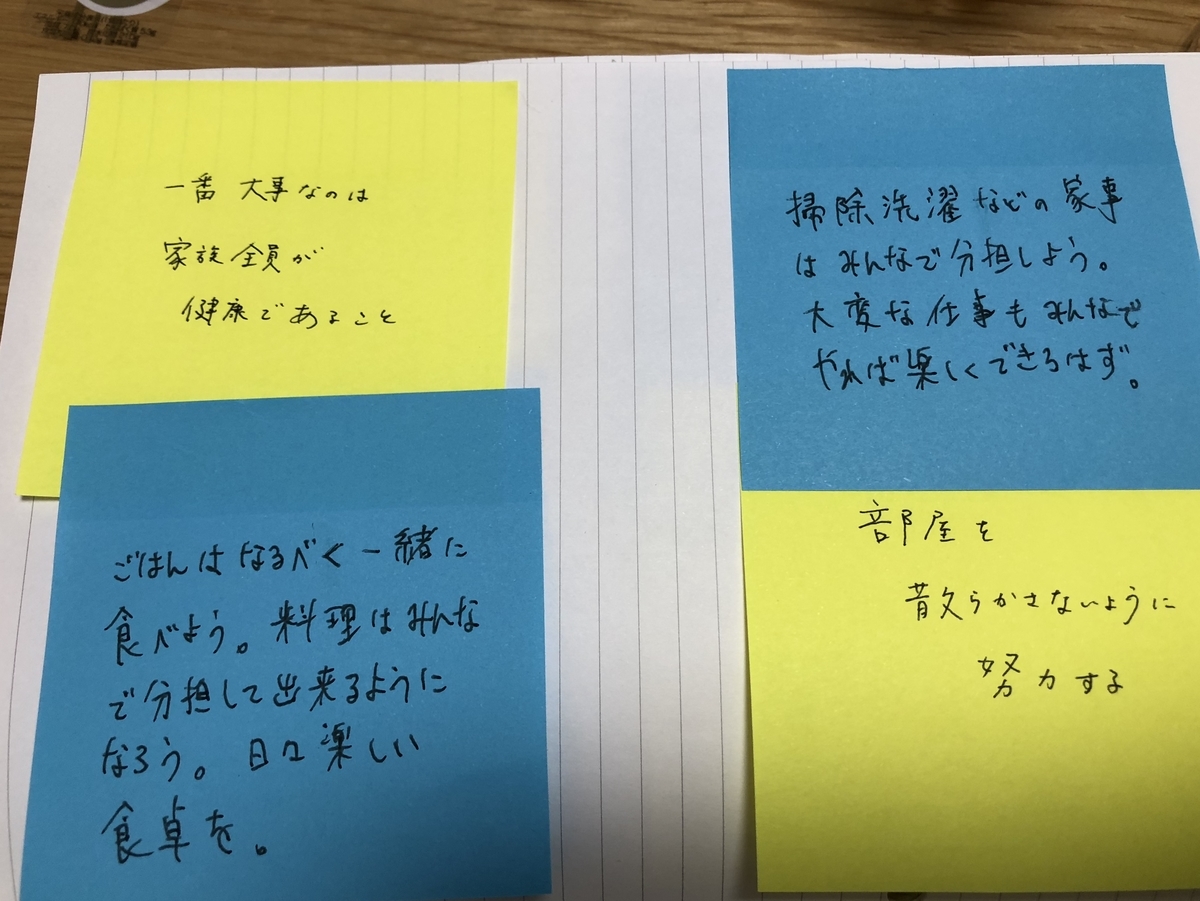 一番 大事なのは
家族全員が
健康であること
ごはんはなるべく一緒に
食べよう。料理はみんな
で分担して出来るように
なろう。日々楽しい
食卓を。
掃除洗濯などの家事
はみんなで分担しよう。
大変な仕事もみんなで
やれば楽しくできるはず。
部屋を
散らかさないように
努力する